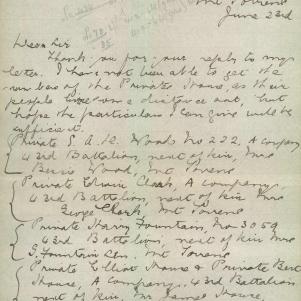 Mt Torrens
June 23rd
Dear Sir
Thank you for your reply to my
letter. I have not been able to get the
number of the Private House, as their
people live a distance out, but
hope the particulars I can give will be
sufficient.
Private E A R. Wood No 222, A company
43rd Battalion, next of kin, Mrs
Wood, Mt Torrens
Private Edwin Clark, A Company
43rd Battalion, next of kin Mrs
George Clark, Mt Torrens
Private Harry Fountain, No 3059
43rd Battalion, next of kin Mr
S. Fountain Sen. Mt Torrens
Private Elliot House & Private Bert
House, A Company, 43rd Battalion
next of kin, Mr James House,